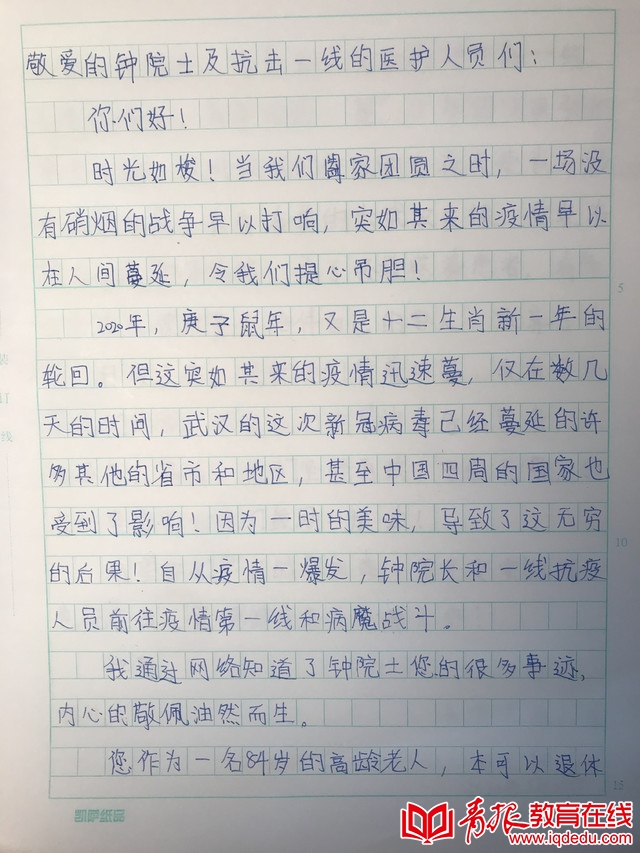 敬爱的钟院士及抗击一线的医护人员们：
你们好！
时光如梭！当我们阖家团圆之时，一场没
有硝烟的战争早以打响，突如其来的疫情早以
在人间蔓延，令我们提心吊胆！
2020年，庚子鼠年，又是十二生肖新一年的
轮回。但这突如其来的疫情迅速蔓，仅在数几
天的时间，武汉的这次新冠病毒已经蔓延的许
多其他的省市和地区，甚至中国四周的国家也
受到了影响！因为一时的美味，导致了这无穷
的后果！自从疫情一爆发，钟院长和一线抗疫
人员前往疫情第一线和病魔战斗。
我通过网络知道了钟院士您的很多事迹，
内心的敬佩油然而生。
您作为一名84岁的高龄老人，本可以退休
5
10
15
装
订
线
凯萨纸品
青报教育在线
www.iqdedu.com